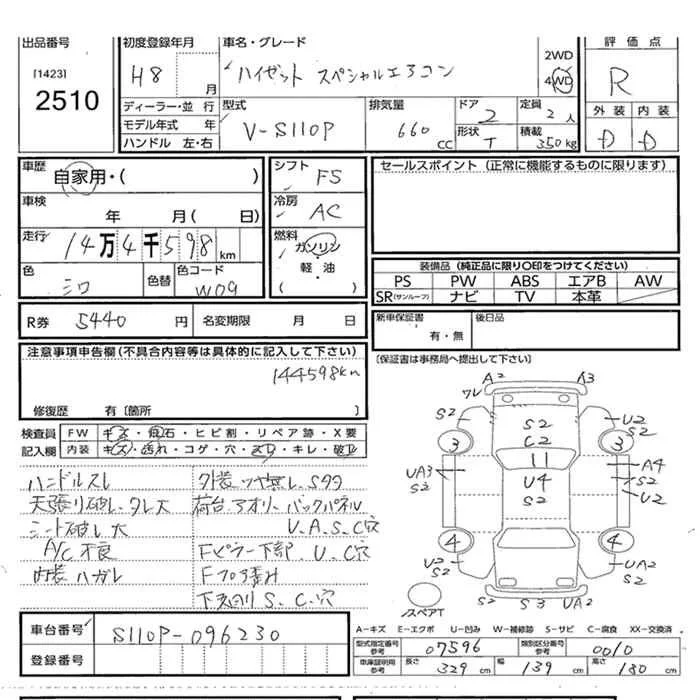 出品番号
[1423]
2510
初度登録年月
H8 月
車名・グレード
ハイゼット スペシャルエアコン
2WD
4WD
評価点
R
ディーラー・並行
モデル年式 年
ハンドル 左・右
型式
V-S110P
排気量
660 cc
ドア
2
形状
T
定員
2 人
積載
350kg
外装 内装
D D
車歴
自家用・( )
車検
年 月( 日)
走行
14万4千598km
色
シロ
色替
色コード
W09
シフト
F5
冷房
AC
燃料
ガソリン
・
軽油
セールスポイント (正常に機能するものに限ります)
装備品 (純正品に限り○印をつけてください)
PS PW ABS エアB AW
SR(サンルーフ) ナビ TV 本革
R券 5440 円 名変期限 月 日
新車保証書
有・無
後日品
注意事項申告欄(不具合内容等は具体的に記入して下さい)
144598km
修復歴 有〔箇所 〕
〔保証書は事務局へ提出して下さい〕
検査員
記入欄
FW キズ・飛石・ヒビ割・リペア跡・X要
内装 キズ・汚れ・コゲ・穴・スレ・キレ・破レ
ハンドルスレ
天張り破レ、タレ大
シート破レ大
A/C不良
内装ハガレ
外装ツヤ無し、Sタタ
荷台アオリ、バックパネル
U、A、S、C穴
Fピラー下部、U、C穴
Fフロア歪み
下廻りS、C、穴
A2 A3
ワレ
S2 S2 U2
C2 S2
3 3
11
UA3 U4 A4
S2 S2 S2
U2
4 4
U2 UA2
S2 S2
S2 S3 UA2
スペアT
車台番号 S110P-096230
登録番号
A-キズ E-エクボ U-凹み W-補修跡 S-サビ C-腐食 XX-交換済
型式指定番号
参考
07596
類別区分番号
参考
0010
車庫証明用
参考
長さ 329 cm 幅 139 cm 高さ 180 cm